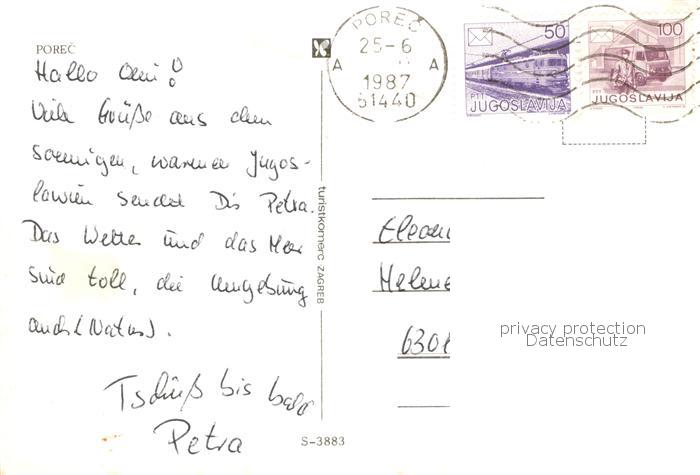 POREČ
Hallo Omi!
Viele Grüße aus dem
sonnigen, warmen Jugos-
lawien sendet Dir Petra.
Das Wetter und das Meer
sind toll, die Umgebung
auch (Natur).
Tschüß bis bald
Petra
turistkomerc ZAGREB
S-3883
POREČ
25-6
A A
1987
51440
50
PTT
JUGOSLAVIJA
100
PTT
JUGOSLAVIJA
Helene
privacy protection
Datenschutz